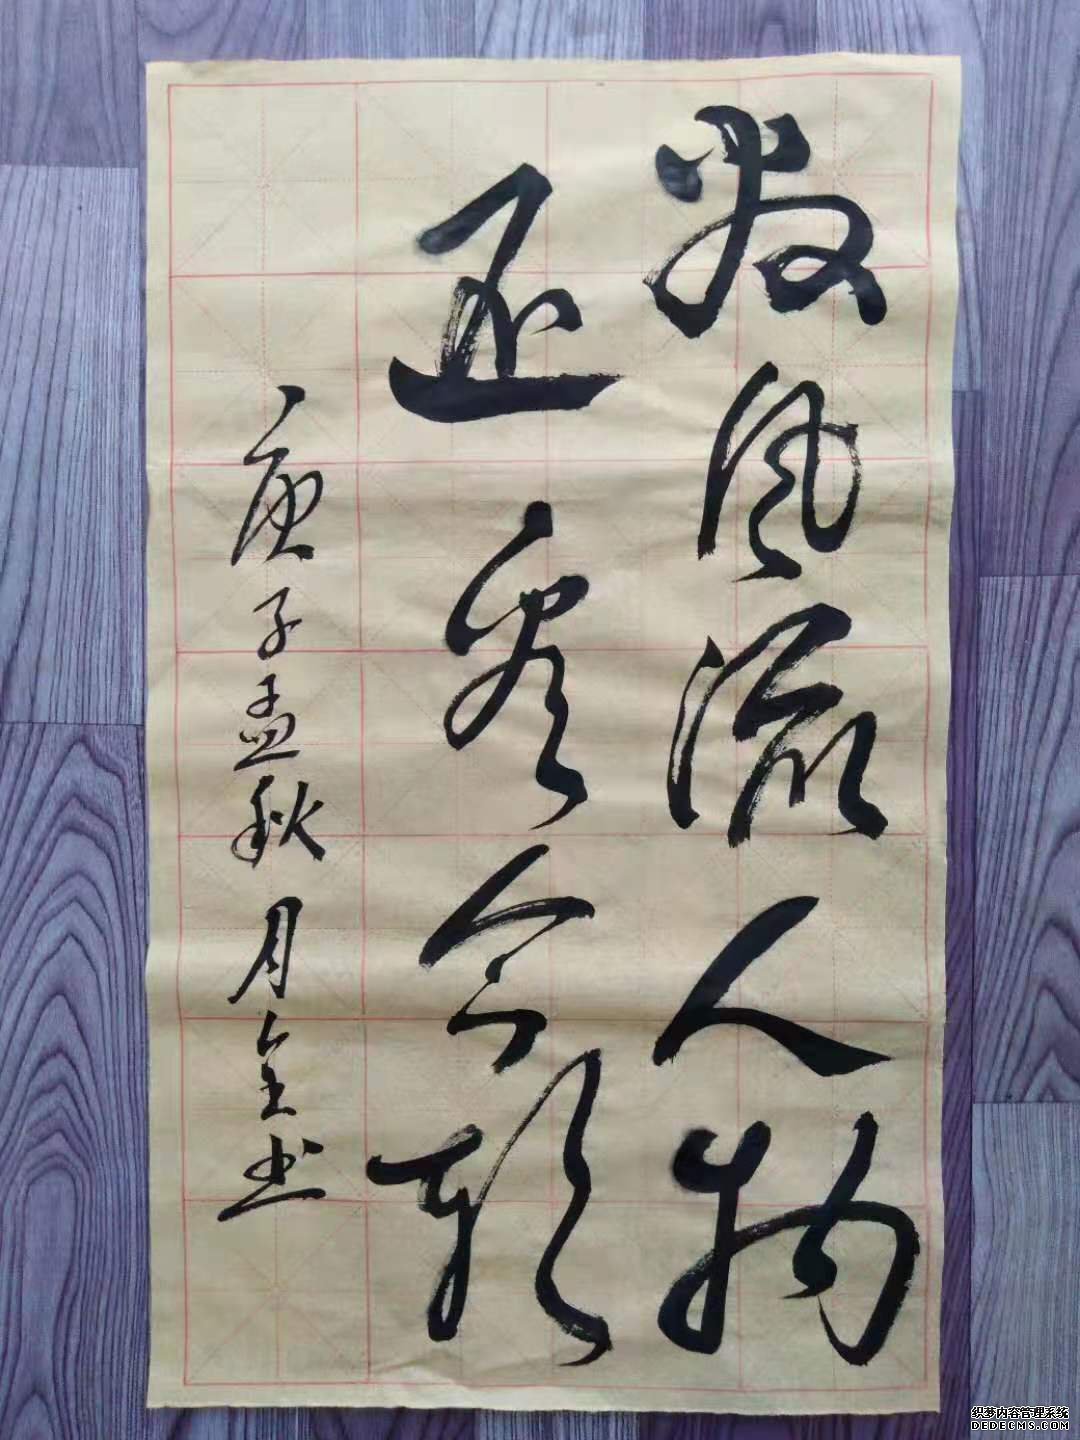 数风流人物
还看今朝
庚子孟秋月金书
织梦内容管理系统
DEDECMS.COM